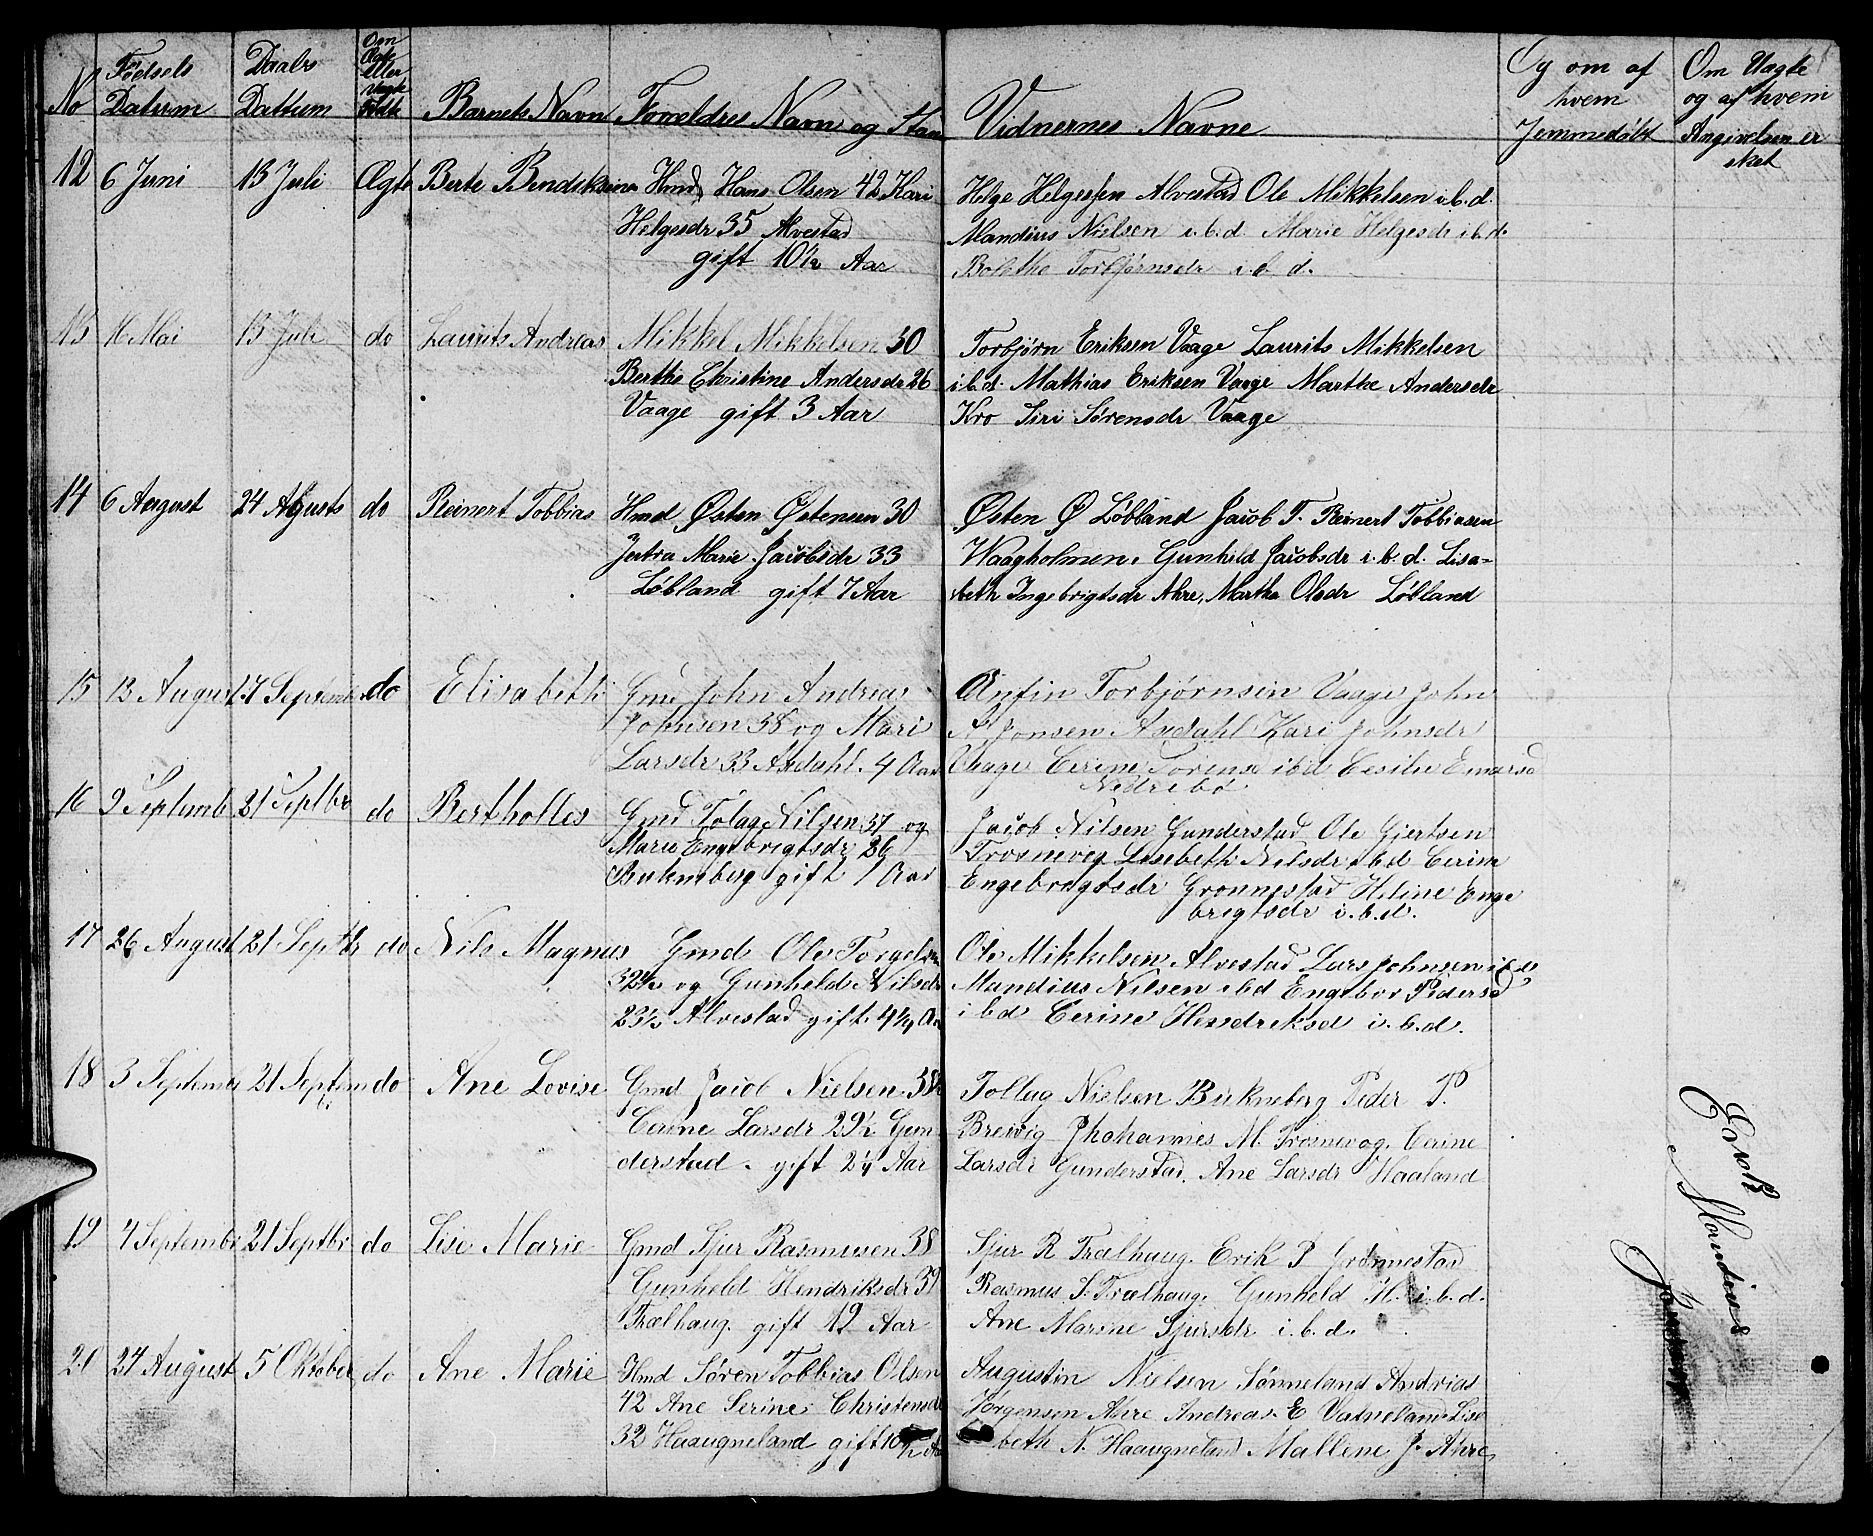 No Fødsels Datum Daabs Dattum Om Ægte eller Uægte Født Barnets Navn Forældres Navn og Stan Vidnernes Navne Og om af hvem Jemmedøbt Om Uagte og af hvem Angivelsen er sket
12 6 Juni 13 Juli Ægte Berte Bendiksine Hmd Hans Olsen 42 Kari
Helgesdr 35 Alvestad
gift 10½ Aar
Helge Helgesen Alvestad Ole Mikkelsen i.b.d.
Mandius Nielsen i.b.d. Marie Helgesdr i.b.d.
Bolethe Torbjørnsdr i.b.d.
13 16 Mai 13 Juli do Laurits Andreas Mikkel Mikkelsen 30
Berthe Christine Andersdr 26
Vaage gift 3 Aar
Torbjørn Eriksen Vaage Laurits Mikkelsen
i.b.d. Mathias Eriksen Vaage Marthe Andersdr
Kro Siri Sørensdr Vaage
14 6 August 24 Agusts do Reinert Tobbias Hmd Østen Østensen 30
Marie Jacobsdr 33
Løbland gift 7 Aar
Østen Ø Løbland Jacob T. Reinert Tobbiasen
Waagholmen. Gunheld Jacobsdr i.b.d. Lisa-
beth Ingebrigtsdr Ahre, Marthe Olsdr Løbland
15 13 August 21 September do Elisabeth Gmd John Andreas
Johnsen 38 og Mari
Larsdr 33 Asdahl. 4 Aar
Anfin Torbjørnsen Vaage John
A Jonsen Asdahl Kari Johnsdr
Vaage Cerine i.b.d Cesilie
Nedrebø
16 9 Septemb 21 Septbr do Bertholles Gmd Tolag Nilsen 37 og
Marie Engebrigtsdr 26
Birkneberg gift 1 Aar
Jacob Nilsen Gunderstad Ole Gjertsen
Trosnevig Lisebeth Nilsdr i.b.d Cerine
Engebrigtsdr Grønnestad Heline Enge
brigtsdr i.b.d.
17 26 August 21 Septb do Nils Magnus Gmd Ole Torgelsen
32½ og Gunhelde Nilsdr
23½ Alvestad gift 4¼ Aar
Ole Mikkelsen Alvestad Lars Johnsen i.b.d.
Mandius Nilsen i.b.d Engebor Pedersd
i.b.d Cerine Hendriksd i.b.d.
18 3 Septemb 21 Septem do Ane Lovise Gmd Jacob Nielsen 38½
Cerine Larsdr 29½ Gun-
derstad. gift 2¼ Aar
Tollag Nielsen Birkneberg Peder P.
Brevig Jhohannes M. Trosnevog. Cerine
Larsdr Gunderstad. Ane Larsdr Haaland
19 4 Septembr 21 Septbr do Lise Marie Gmd Sjur Rasmusen 38
Gunheld Hendriksdr 39
Trælhaug. gift 12 Aar
Sjur R Trælhaug. Erik P Grønnestad
Rasmus S. Trælhaug. Gunheld H. i.b.d.
Ane Marine Sjursdr i.b.d.
20 24 August 5 Oktober do Ane Marie Hmd Søren Tobbias Olsen
42 Ane Serine Christensdr
32 Haaugneland gift 10½ Aar
Augustin Nielsen Sønneland Andrias
Jørgensen Ahre Andreas E Vatneland Lise
beth N. Haaugneland Mallene J. Ahre
Erik
Mandius